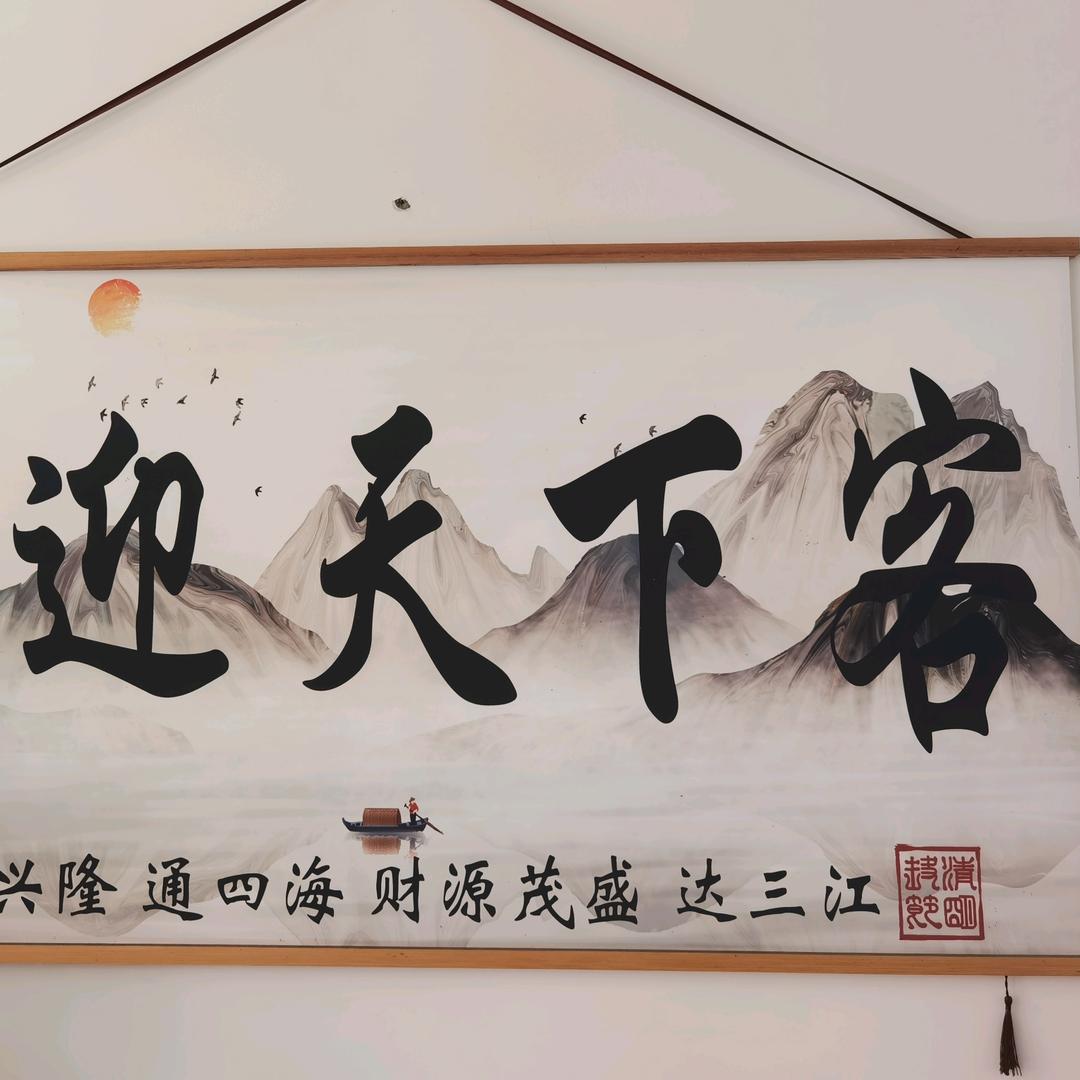 迎天下客
兴隆 通四海 财源茂盛 达三江